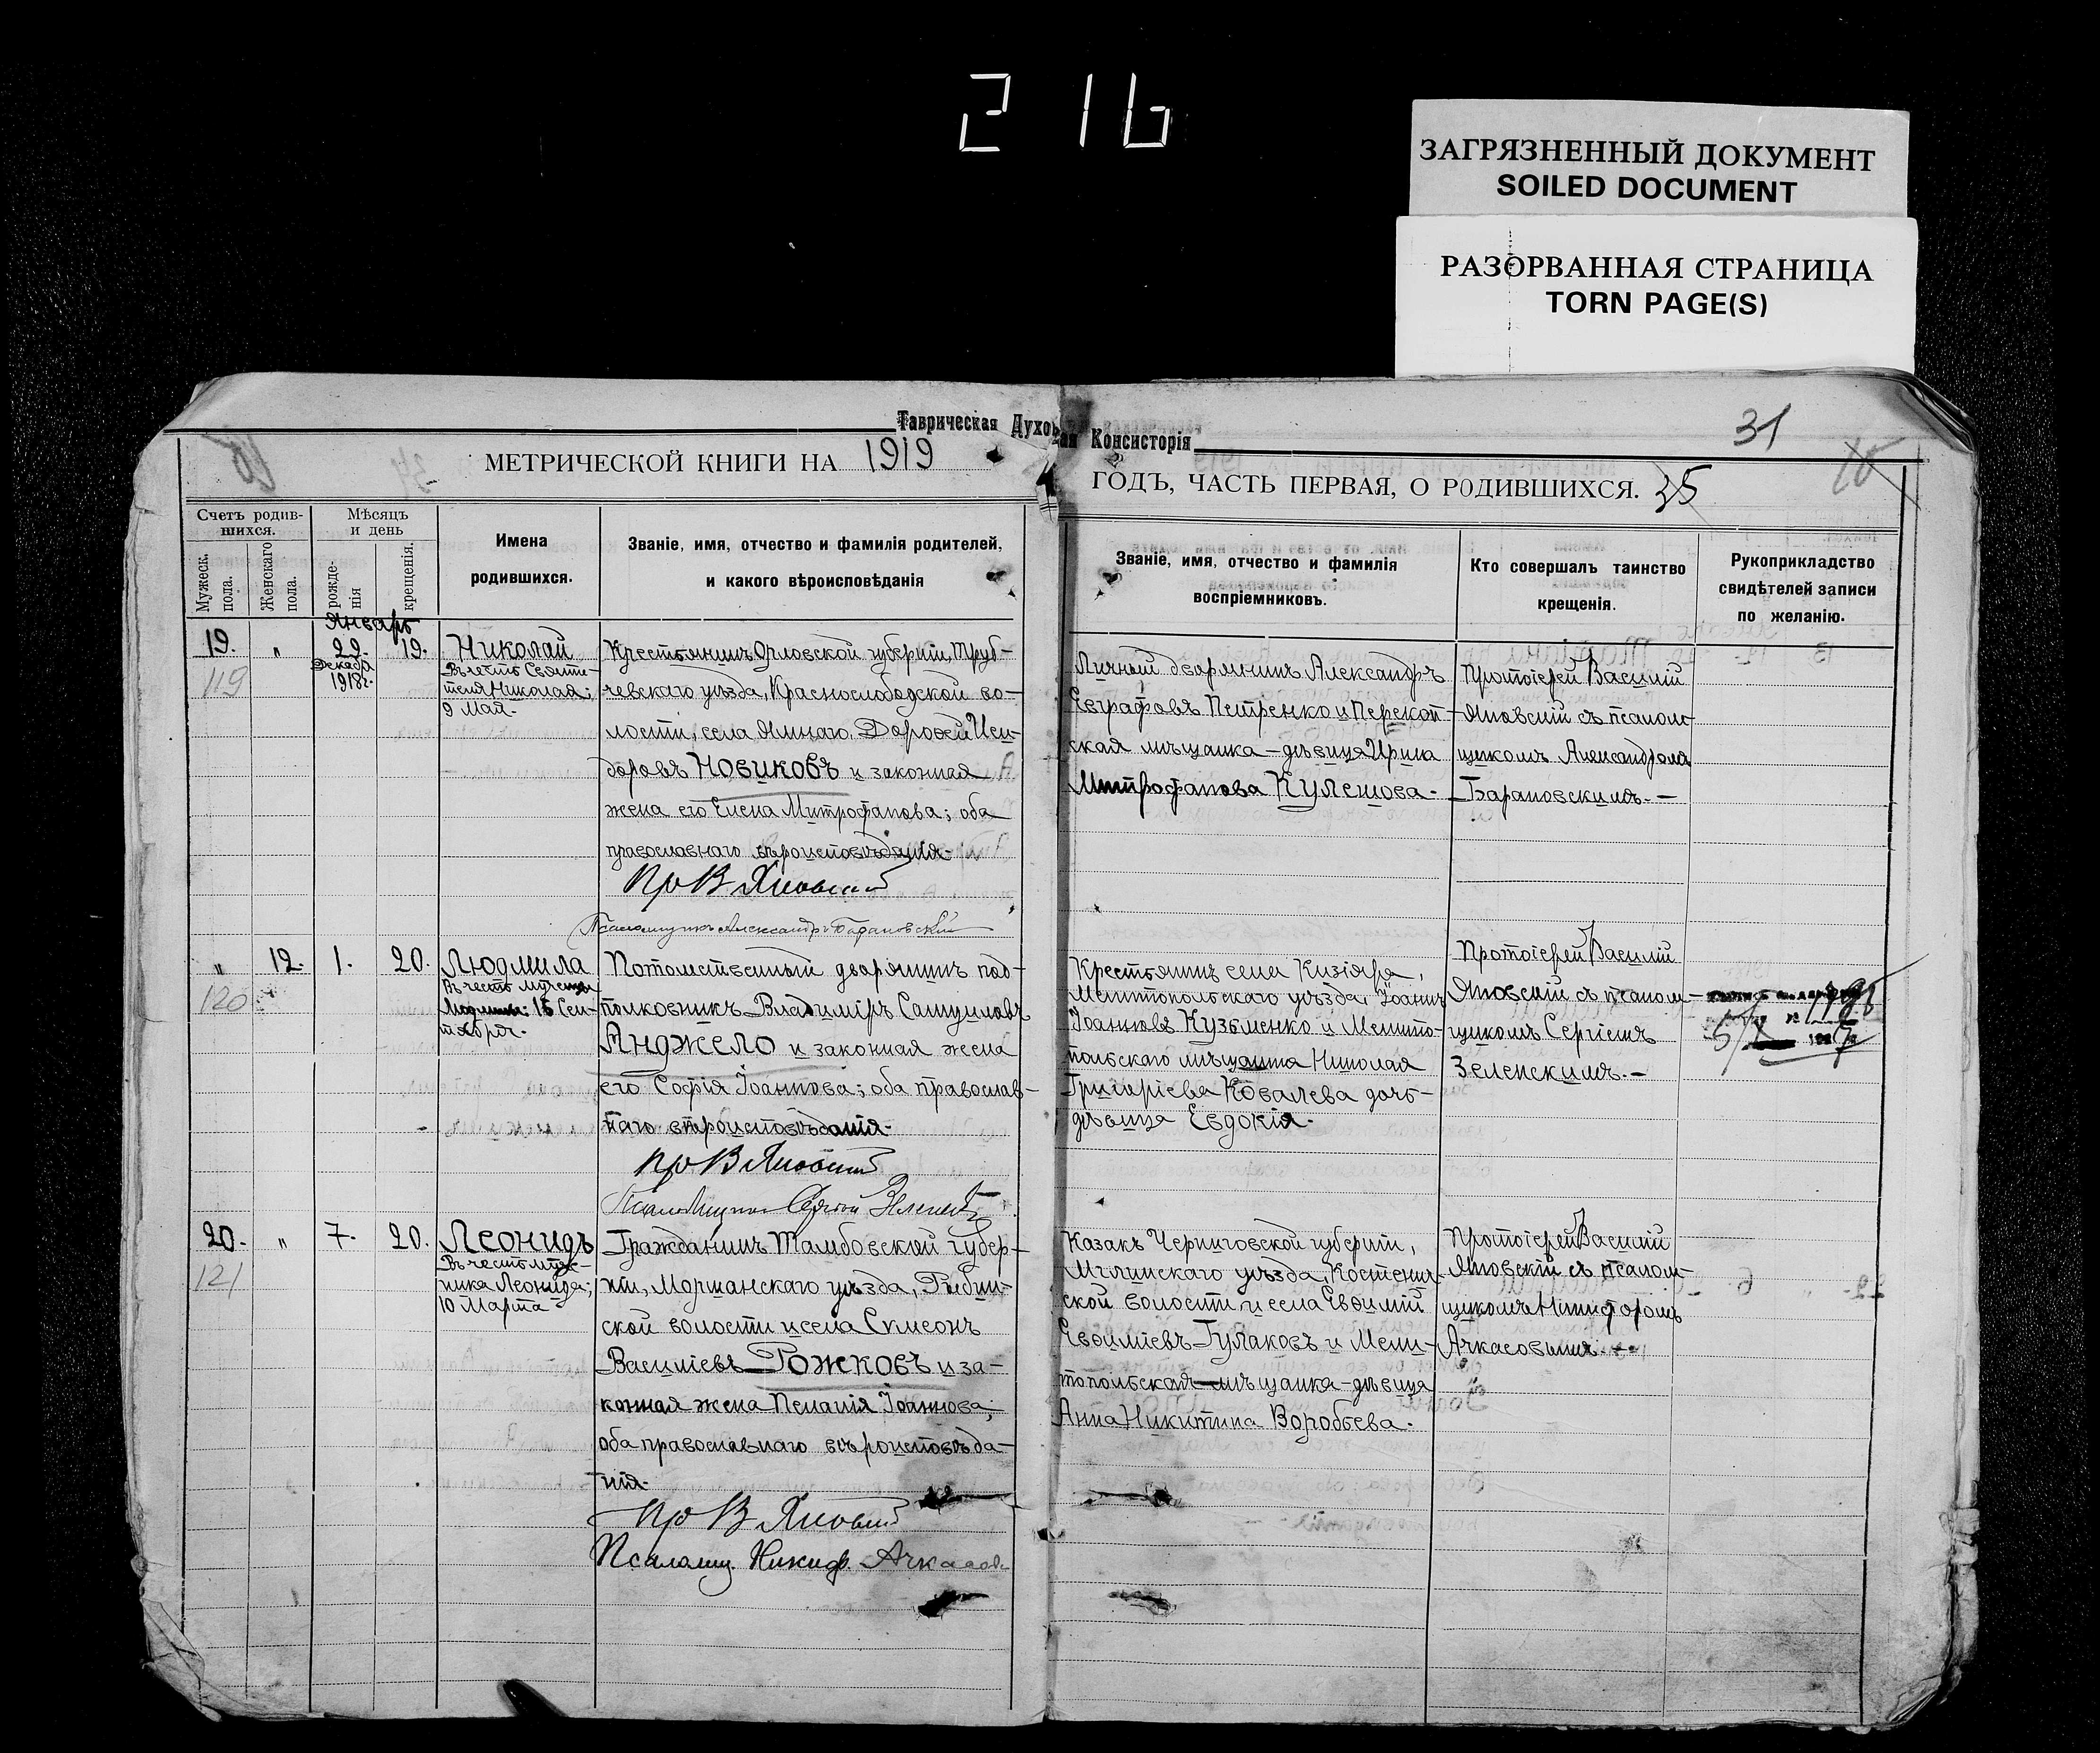 216
ЗАГРЯЗНЕННЫЙ ДОКУМЕНТ
SOILED DOCUMENT
РАЗОРВАННАЯ СТРАНИЦА
TORN PAGE(S)
Таврическая Духов
ая Консисторія
31
МЕТРИЧЕСКОЙ КНИГИ НА 1919
ГОДЪ, ЧАСТЬ ПЕРВАЯ, О РОДИВШИХСЯ. 35
Счетъ родив-
шихся.
Мужеск.
пола.
Женскаго
пола.
Мѣсяцъ
и день
рожде-
нія
крещенія.
Имена
родившихся.
Званіе, имя, отчество и фамилія родителей,
и какого вѣроисповѣданія
Званіе, имя, отчество и фамилія
воспріемниковъ.
Кто совершалъ таинство
крещенія.
Рукоприкладство
свидѣтелей записи
по желанію.
Январь
19.
„
119
29.
Декабр.
1918г.
19.
Николай
Въ честь Святи-
теля Николая;
9 Мая.
Крестьянинъ Орловской губерніи, Труб-
чевскаго уѣзда, Краснослободской во-
лости, села Ямнаго, Дорофей Иси-
доровъ Новиковъ и законная
жена его Елена Митрофанова; оба
православнаго вѣроисповѣданія.
Пр В Яновскій
Псаломщикъ Александръ Барановскій
Личный дворянинъ Александръ
Евграфовъ Петренко и Перекоп-
ская мѣщанка-дѣвица Ирина
Митрофанова Кулешова.
Протоіерей Василій
Яновскій съ псалом-
щикомъ Александромъ
Барановскимъ.-
„
12.
120
1.
20.
Людмила
Въ честь мучен.
Людмилы: 16 Сен-
тября.
Потомственный дворянинъ под-
полковникъ Владиміръ Самуиловъ
Анджело и законная жена
его Софія Іоаннова; оба православ-
наго вѣроисповѣданія.
Пр В Яновскій
Псаломщикъ Сергій Зеленскій
Крестьянинъ села Кизіяра,
Мелитопольскаго уѣзда, Іоаннъ
Іоанновъ Кузьменко и Мелито-
польскаго мѣщанина Николая
Григоріева Ковалева дочь-
дѣвица Евдокія.
Протоіерей Василій
Яновскій съ псалом-
щикомъ Сергіемъ
Зеленскимъ.-
20.
„
121
7.
20.
Леонидъ
Въ честь муче-
ника Леонида;
10 Марта
Гражданинъ Тамбовской губер-
ніи, Моршанскаго уѣзда,
ской волости и села Симеонъ
Василіевъ Рожковъ и за-
конная жена Пелагія Іоаннова;
оба православнаго вѣроисповѣда-
нія.
Пр В Яновскій
Псаломщ. Никиф. Ачкасов
Казакъ Черниговской губерніи,
Мглинскаго уѣзда,
ской волости и села Евѳимій
Евѳиміевъ Гулаковъ и Мели-
топольская мѣщанка-дѣвица
Анна Никитина Воробьева.
Протоіерей Василій
Яновскій съ псалом-
щикомъ Никифоромъ
Ачкасовымъ.-